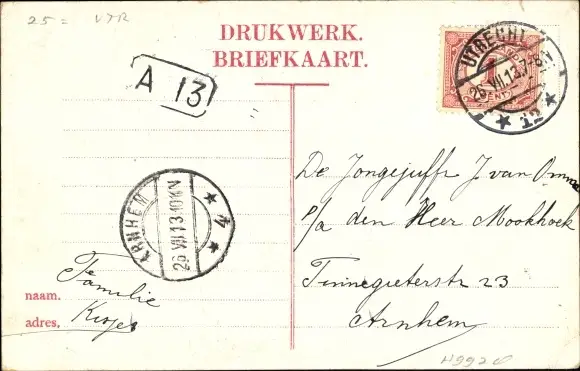 25 = VTR
DRUKWERK.
BRIEFKAART.
A 13
UTRECHT
26.VII.13.7-8N
1
CENT
ARNHEM
26 VII 13 10-11N
4
De Jongejuffr J van Omme
p/a den Heer Mookhoek
Tinnegieterstr 23
Arnhem
Familie
naam.
adres.